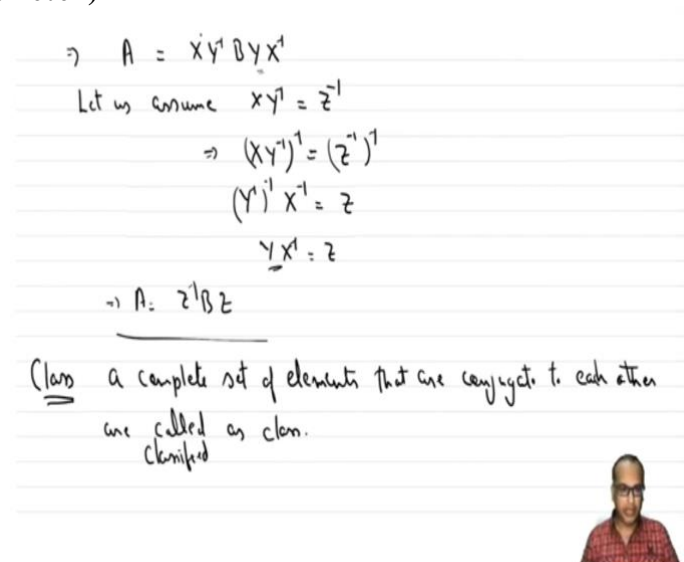 ⇒ A = XY⁻¹BYX⁻¹
Let us assume XY⁻¹ = Z⁻¹
⇒ (XY⁻¹)⁻¹ = (Z⁻¹)⁻¹
(Y⁻¹)⁻¹ X⁻¹ = Z
YX⁻¹ = Z
⇒ A = Z⁻¹BZ
Class a complete set of elements that are conjugate to each other
are called as class.
classified